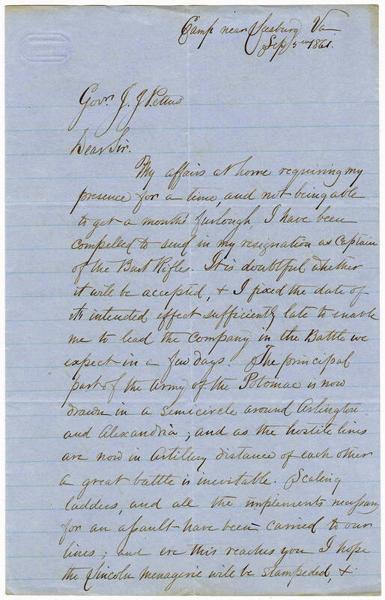 Camp near Leesburg Va
Sep 5th 1861.
Govr. J. J. Pettus
Dear Sir.
My affairs at home requiring my
presence for a time, and not being able
to get a months furlough I have been
compelled to send in my resignation as Captain
of the Burt Rifles. It is doubtful whether
it will be accepted, & I fixed the date of
its intended effect sufficiently late to enable
me to lead the company in the Battle we
expect in a few days. The principal
part of the Army of the Potomac is now
drawn in a semicircle around Arlington
and Alexandria; and as the hostile lines
are now in Artillery distance of each other
a great battle is inevitable. Scaling
ladders, and all the implements necessary
for an assault have been carried to our
lines; and ere this reaches you I hope
the Lincoln menagerie will be stampeded, &